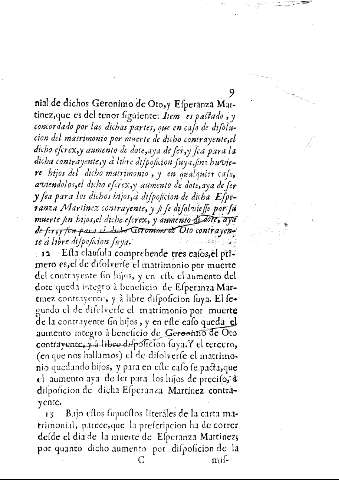 9
nial de dichos Geronimo de Oto, y Esperanza Mar-
tinez, que es del tenor siguiente: Item es pactado, y
concordado por las dichas partes, que en caso de disolu-
cion del matrimonio por muerte de dicho contrayente, el
dicho escrex, y aumento de dote, aya de ser, y sea para la
dicha contrayente, à libre disposicion suya, sino huvie-
re hijos del dicho matrimonio, y en qualquier caso,
aviendolos, el dicho escrex, y aumento de dote, aya de ser
y sea para los dichos hijos, à disposicion de dicha Espe-
ranza Martinez contrayente, y si se disolviesse por su
muerte sin hijos, el dicho escrex, y aumento de dote, aya
de ser, y sea para el dicho Geronimo de Oto contrayen-
te à libre disposicion suya.
12 Esta clausula comprehende tres casos, el pri-
mero es, el de disolverse el matrimonio por muerte
del contrayente sin hijos, y en este el aumento del
dote queda integro à beneficio de Esperanza Mar-
tinez contrayente, y à libre disposicion suya. El se-
gundo el de disolverse el matrimonio por muerte
de la contrayente sin hijos, y en este caso queda el
aumento integro à beneficio de Geronimo de Oto
contrayente, y à libre disposicion suya. Y el tercero,
(en que nos hallamos) el de disolverse el matrimo-
nio quedando hijos, y para en este caso se pacta, que
el aumento aya de ser para los hijos de preciso, à
disposicion de dicha Esperanza Martinez contra-
yente.
13 Bajo estos supuestos literales de la carta ma-
trimonial, parece, que la prescripcion ha de correr
desde el dia de la muerte de Esperanza Martinez;
por quanto dicho aumento por disposicion de la
C mis-